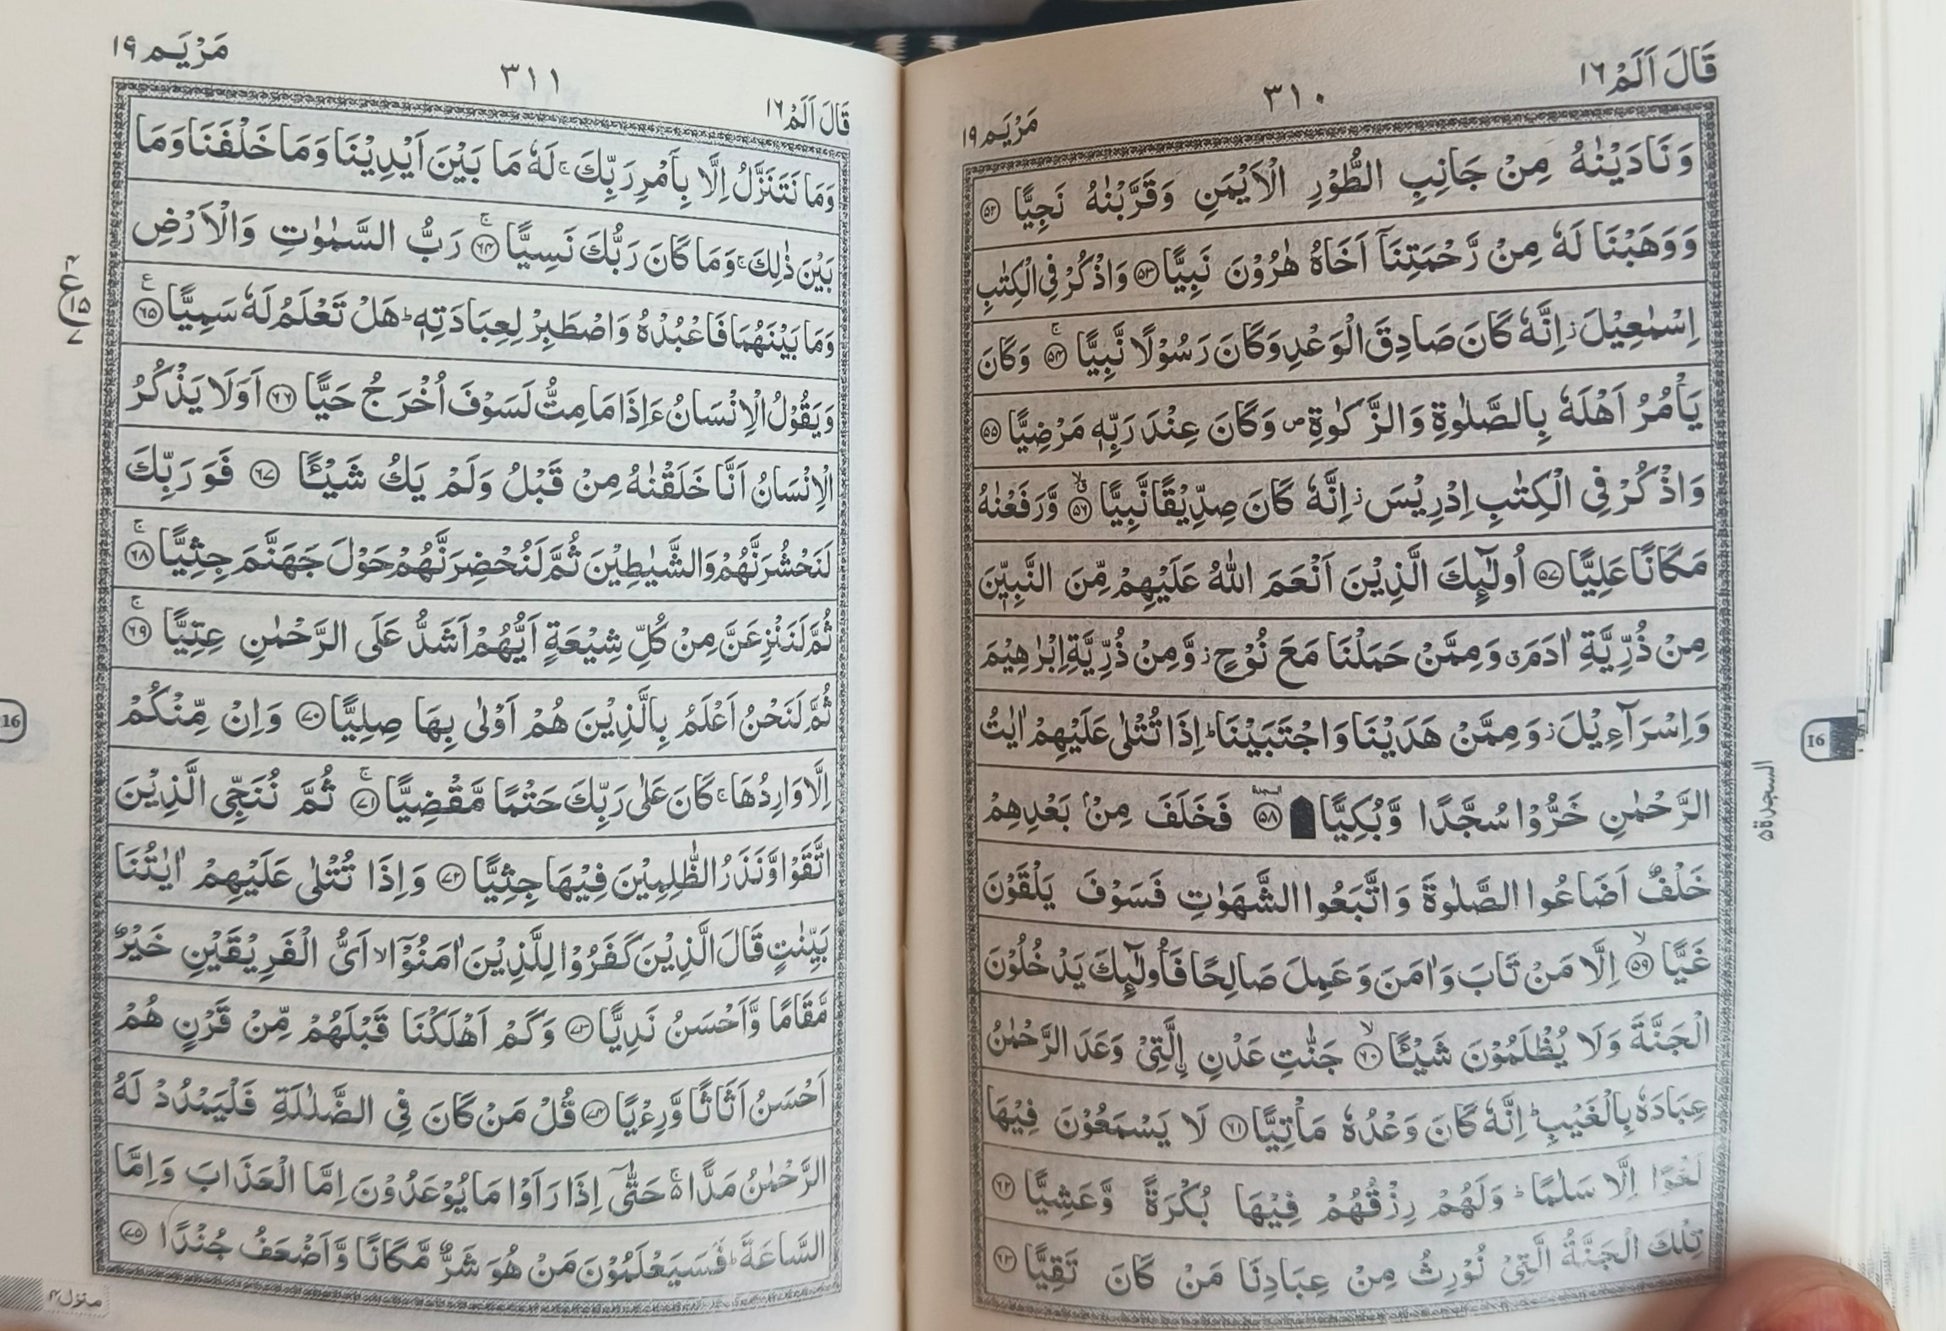 قَالَ اَلَمْ ١٦
٣١٠
مَرْيَم ١٩
وَنَادَيْنٰهُ مِنْ جَانِبِ الطُّوْرِ الْاَيْمَنِ وَقَرَّبْنٰهُ نَجِيًّا ۝٥٢
وَوَهَبْنَا لَهٗ مِنْ رَّحْمَتِنَاۤ اَخَاهُ هٰرُوْنَ نَبِيًّا ۝٥٣ وَاذْكُرْ فِى الْكِتٰبِ
اِسْمٰعِيْلَ ز اِنَّهٗ كَانَ صَادِقَ الْوَعْدِ وَكَانَ رَسُوْلًا نَّبِيًّا ۚ۝٥٤ وَكَانَ
يَاْمُرُ اَهْلَهٗ بِالصَّلٰوةِ وَالزَّكٰوةِ ص وَكَانَ عِنْدَ رَبِّهٖ مَرْضِيًّا ۝٥٥
وَاذْكُرْ فِى الْكِتٰبِ اِدْرِيْسَ ز اِنَّهٗ كَانَ صِدِّيْقًا نَّبِيًّا ۝٥٦ وَّرَفَعْنٰهُ
مَكَانًا عَلِيًّا ۝٥٧ اُولٰٓئِكَ الَّذِيْنَ اَنْعَمَ اللّٰهُ عَلَيْهِمْ مِّنَ النَّبِيّٖنَ
مِنْ ذُرِّيَّةِ اٰدَمَ ق وَمِمَّنْ حَمَلْنَا مَعَ نُوْحٍ ز وَّمِنْ ذُرِّيَّةِ اِبْرٰهِيْمَ
وَاِسْرَآءِيْلَ ز وَمِمَّنْ هَدَيْنَا وَاجْتَبَيْنَا ؕ اِذَا تُتْلٰى عَلَيْهِمْ اٰيٰتُ
الرَّحْمٰنِ خَرُّوْا سُجَّدًا وَّبُكِيًّا ۝٥٨ فَخَلَفَ مِنْۢ بَعْدِهِمْ
خَلْفٌ اَضَاعُوا الصَّلٰوةَ وَاتَّبَعُوا الشَّهَوٰتِ فَسَوْفَ يَلْقَوْنَ
غَيًّا ۙ۝٥٩ اِلَّا مَنْ تَابَ وَاٰمَنَ وَعَمِلَ صَالِحًا فَاُولٰٓئِكَ يَدْخُلُوْنَ
الْجَنَّةَ وَلَا يُظْلَمُوْنَ شَيْـًٔا ۙ۝٦٠ جَنّٰتِ عَدْنِ ۨالَّتِىْ وَعَدَ الرَّحْمٰنُ
عِبَادَهٗ بِالْغَيْبِ ؕ اِنَّهٗ كَانَ وَعْدُهٗ مَاْتِيًّا ۝٦١ لَا يَسْمَعُوْنَ فِيْهَا
لَغْوًا اِلَّا سَلٰمًا ؕ وَلَهُمْ رِزْقُهُمْ فِيْهَا بُكْرَةً وَّعَشِيًّا ۝٦٢
تِلْكَ الْجَنَّةُ الَّتِىْ نُوْرِثُ مِنْ عِبَادِنَا مَنْ كَانَ تَقِيًّا ۝٦٣
السجدة ٥
16
مَرْيَم ١٩
٣١١
قَالَ اَلَمْ ١٦
وَمَا نَتَنَزَّلُ اِلَّا بِاَمْرِ رَبِّكَ ۚ لَهٗ مَا بَيْنَ اَيْدِيْنَا وَمَا خَلْفَنَا وَمَا
بَيْنَ ذٰلِكَ ۚ وَمَا كَانَ رَبُّكَ نَسِيًّا ۚ۝٦٤ رَبُّ السَّمٰوٰتِ وَالْاَرْضِ
وَمَا بَيْنَهُمَا فَاعْبُدْهُ وَاصْطَبِرْ لِعِبَادَتِهٖ ؕ هَلْ تَعْلَمُ لَهٗ سَمِيًّا ۝٦٥
وَيَقُوْلُ الْاِنْسَانُ ءَاِذَا مَا مِتُّ لَسَوْفَ اُخْرَجُ حَيًّا ۝٦٦ اَوَلَا يَذْكُرُ
الْاِنْسَانُ اَنَّا خَلَقْنٰهُ مِنْ قَبْلُ وَلَمْ يَكُ شَيْـًٔا ۝٦٧ فَوَرَبِّكَ
لَنَحْشُرَنَّهُمْ وَالشَّيٰطِيْنَ ثُمَّ لَنُحْضِرَنَّهُمْ حَوْلَ جَهَنَّمَ جِثِيًّا ۚ۝٦٨
ثُمَّ لَنَنْزِعَنَّ مِنْ كُلِّ شِيْعَةٍ اَيُّهُمْ اَشَدُّ عَلَى الرَّحْمٰنِ عِتِيًّا ۚ۝٦٩
ثُمَّ لَنَحْنُ اَعْلَمُ بِالَّذِيْنَ هُمْ اَوْلٰى بِهَا صِلِيًّا ۝٧٠ وَاِنْ مِّنْكُمْ
اِلَّا وَارِدُهَا ۚ كَانَ عَلٰى رَبِّكَ حَتْمًا مَّقْضِيًّا ۚ۝٧١ ثُمَّ نُنَجِّى الَّذِيْنَ
اتَّقَوْا وَّنَذَرُ الظّٰلِمِيْنَ فِيْهَا جِثِيًّا ۝٧٢ وَاِذَا تُتْلٰى عَلَيْهِمْ اٰيٰتُنَا
بَيِّنٰتٍ قَالَ الَّذِيْنَ كَفَرُوْا لِلَّذِيْنَ اٰمَنُوْۤا ۙ اَىُّ الْفَرِيْقَيْنِ خَيْرٌ
مَّقَامًا وَّاَحْسَنُ نَدِيًّا ۝٧٣ وَكَمْ اَهْلَكْنَا قَبْلَهُمْ مِّنْ قَرْنٍ هُمْ
اَحْسَنُ اَثَاثًا وَّرِءْيًا ۝٧٤ قُلْ مَنْ كَانَ فِى الضَّلٰلَةِ فَلْيَمْدُدْ لَهُ
الرَّحْمٰنُ مَدًّا ۚ۬ حَتّٰۤى اِذَا رَاَوْا مَا يُوْعَدُوْنَ اِمَّا الْعَذَابَ وَاِمَّا
السَّاعَةَ ؕ فَسَيَعْلَمُوْنَ مَنْ هُوَ شَرٌّ مَّكَانًا وَّاَضْعَفُ جُنْدًا ۝٧٥
٤
ع ١٥
٧
16
منزل ٤